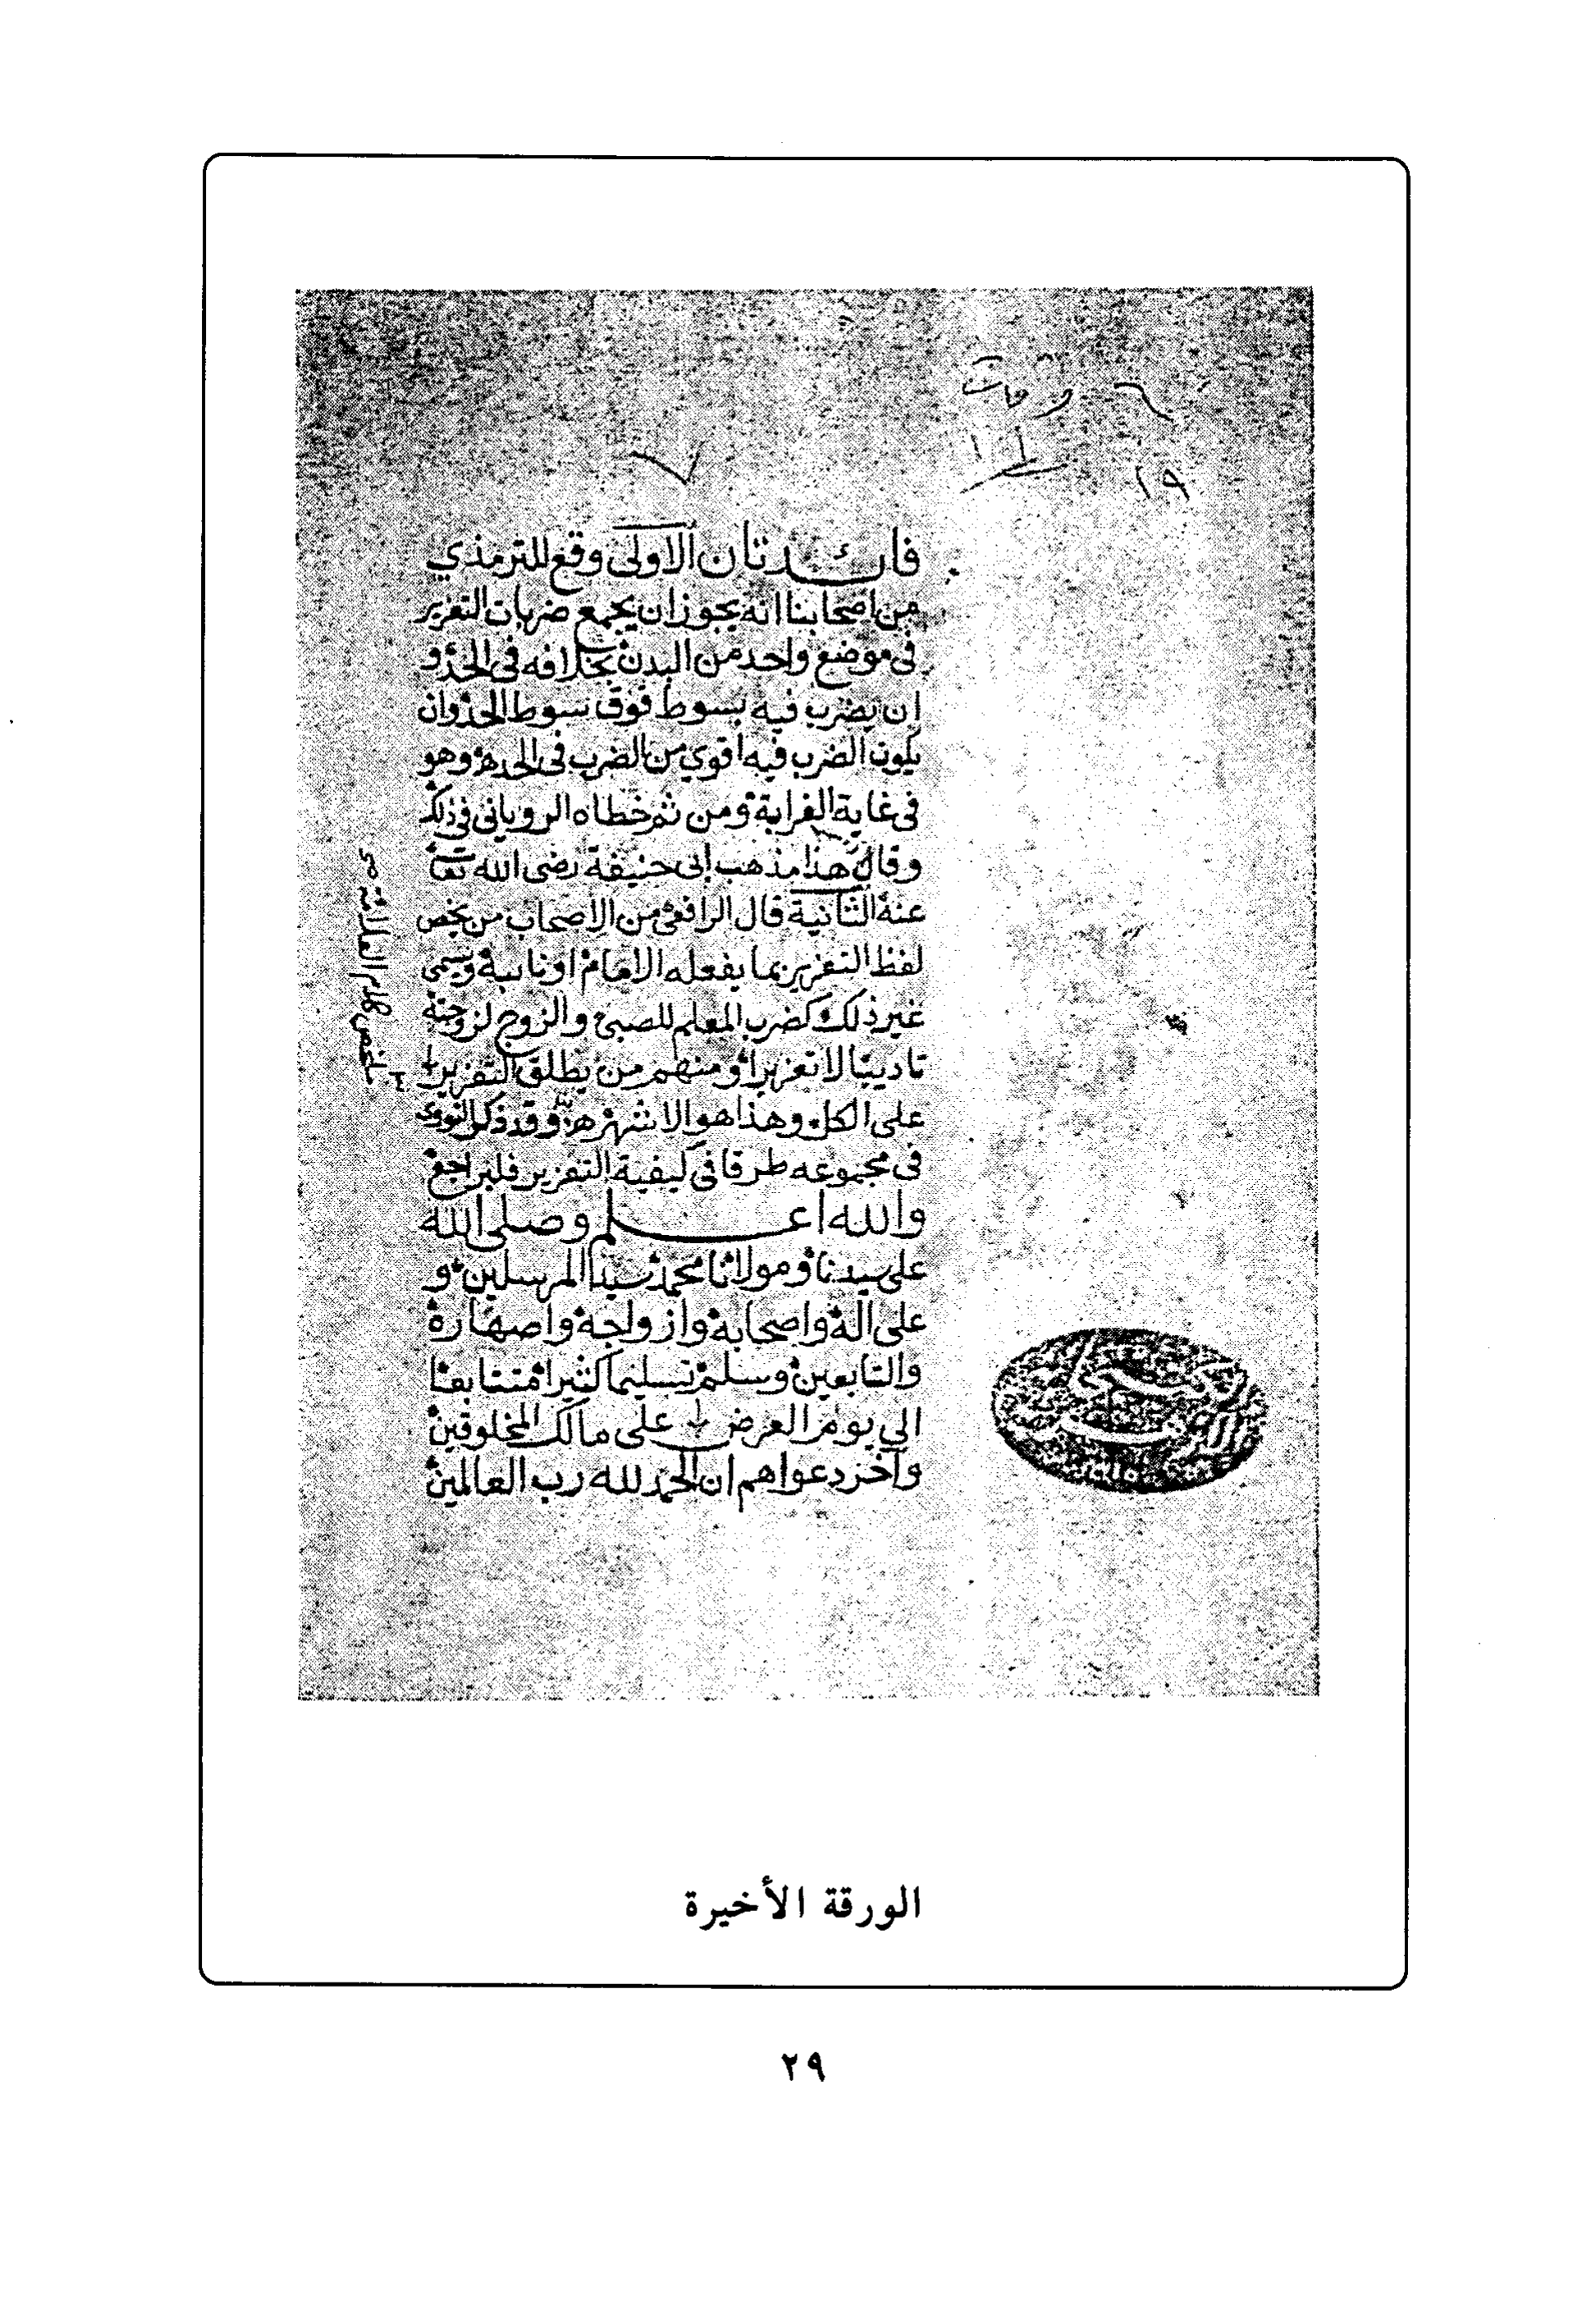 ورقة
١٩
فائدتان الاولى وقع للترمذي
من اصحابنا انه يجوز ان يجمع ضربات التعزير
فى موضع واحد من البدن بخلافه فى الحد و
ان يضرب فيه بسوط فوق سوط الحد وان
يكون الضرب فيه اقوي من الضرب فى الحد وهو
فى غاية الغرابة ومن ثم خطاه الرويانى فى ذلك
وقال هذا مذهب ابى حنيفة رضى الله تعا
عنه الثانية قال الرافعى من الاصحاب من يخص
لفظ التعزير بما يفعله الامام او نائبه ويسمى
غير ذلك كضرب المعلم للصبى والزوج لزوجته
تاديبا لا تعزيرا ومنهم من يطلق التعزير
على الكل وهذا هو الاشهر وقد ذكر النووى
فى مجموعه طرقا فى كيفية التعزير فليراجع
والله اعلم وصلى الله
على سيدنا ومولانا محمد سيد المرسلين و
على اله واصحابه وازواجه واصهاره
والتابعين وسلم تسليما كثيرا متتابعا
الى يوم العرض على مالك المخلوقين
وآخر دعواهم ان الحمد لله رب العالمين
الورقة الأخيرة
٢٩